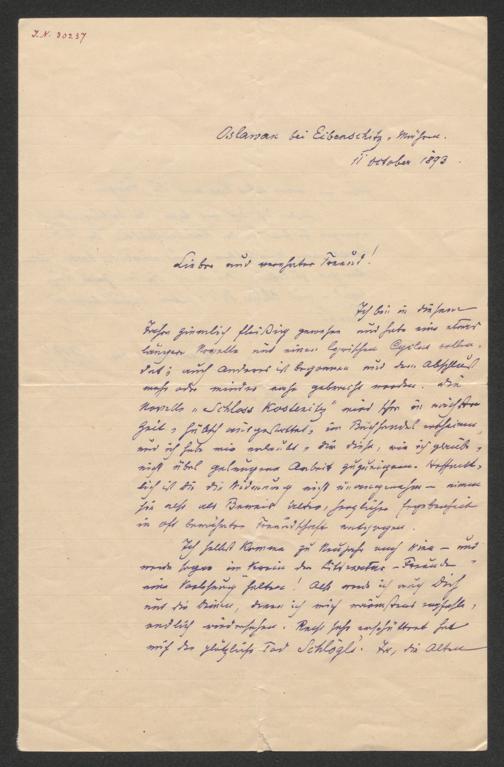 J.N. 80237
Oslawan bei Eibenschitz, Mähren.
11 October 1893.
Lieber und verehrter Freund!
Ich bin in diesem
Jahre ziemlich fleißig gewesen und habe eine etwas
längere Novelle und einen lyrischen Cyclus vollen-
det; auch Anderes ist begonnen und dem Abschluß
mehr oder minder nahe gebracht worden. Die
Novelle „Schloss Kostenitz" wird schon in nächster
Zeit, hübsch ausgestattet, im Buchhandel erscheinen,
und ich habe mir erlaubt, Dir diese, wie ich glaube,
nicht übel gelungene Arbeit zuzueignen. Hoffent-
lich ist Dir die Widmung nicht unangenehm – nimm
sie als Beweis alter, herzlicher Ergebenheit
in oft bewährter Freundschaft entgegen.
Ich selbst komme zu Neujahr nach Wien – und
werde sogar im Verein der Literatur-Freunde
eine Vorlesung halten! Also werde ich auch Dich
und die Deinen, denen ich mich wärmstens empfehle,
endlich wiedersehen. Recht sehr erschüttert hat
mich der plötzliche Tod Schlögl's. Ja, die Alten